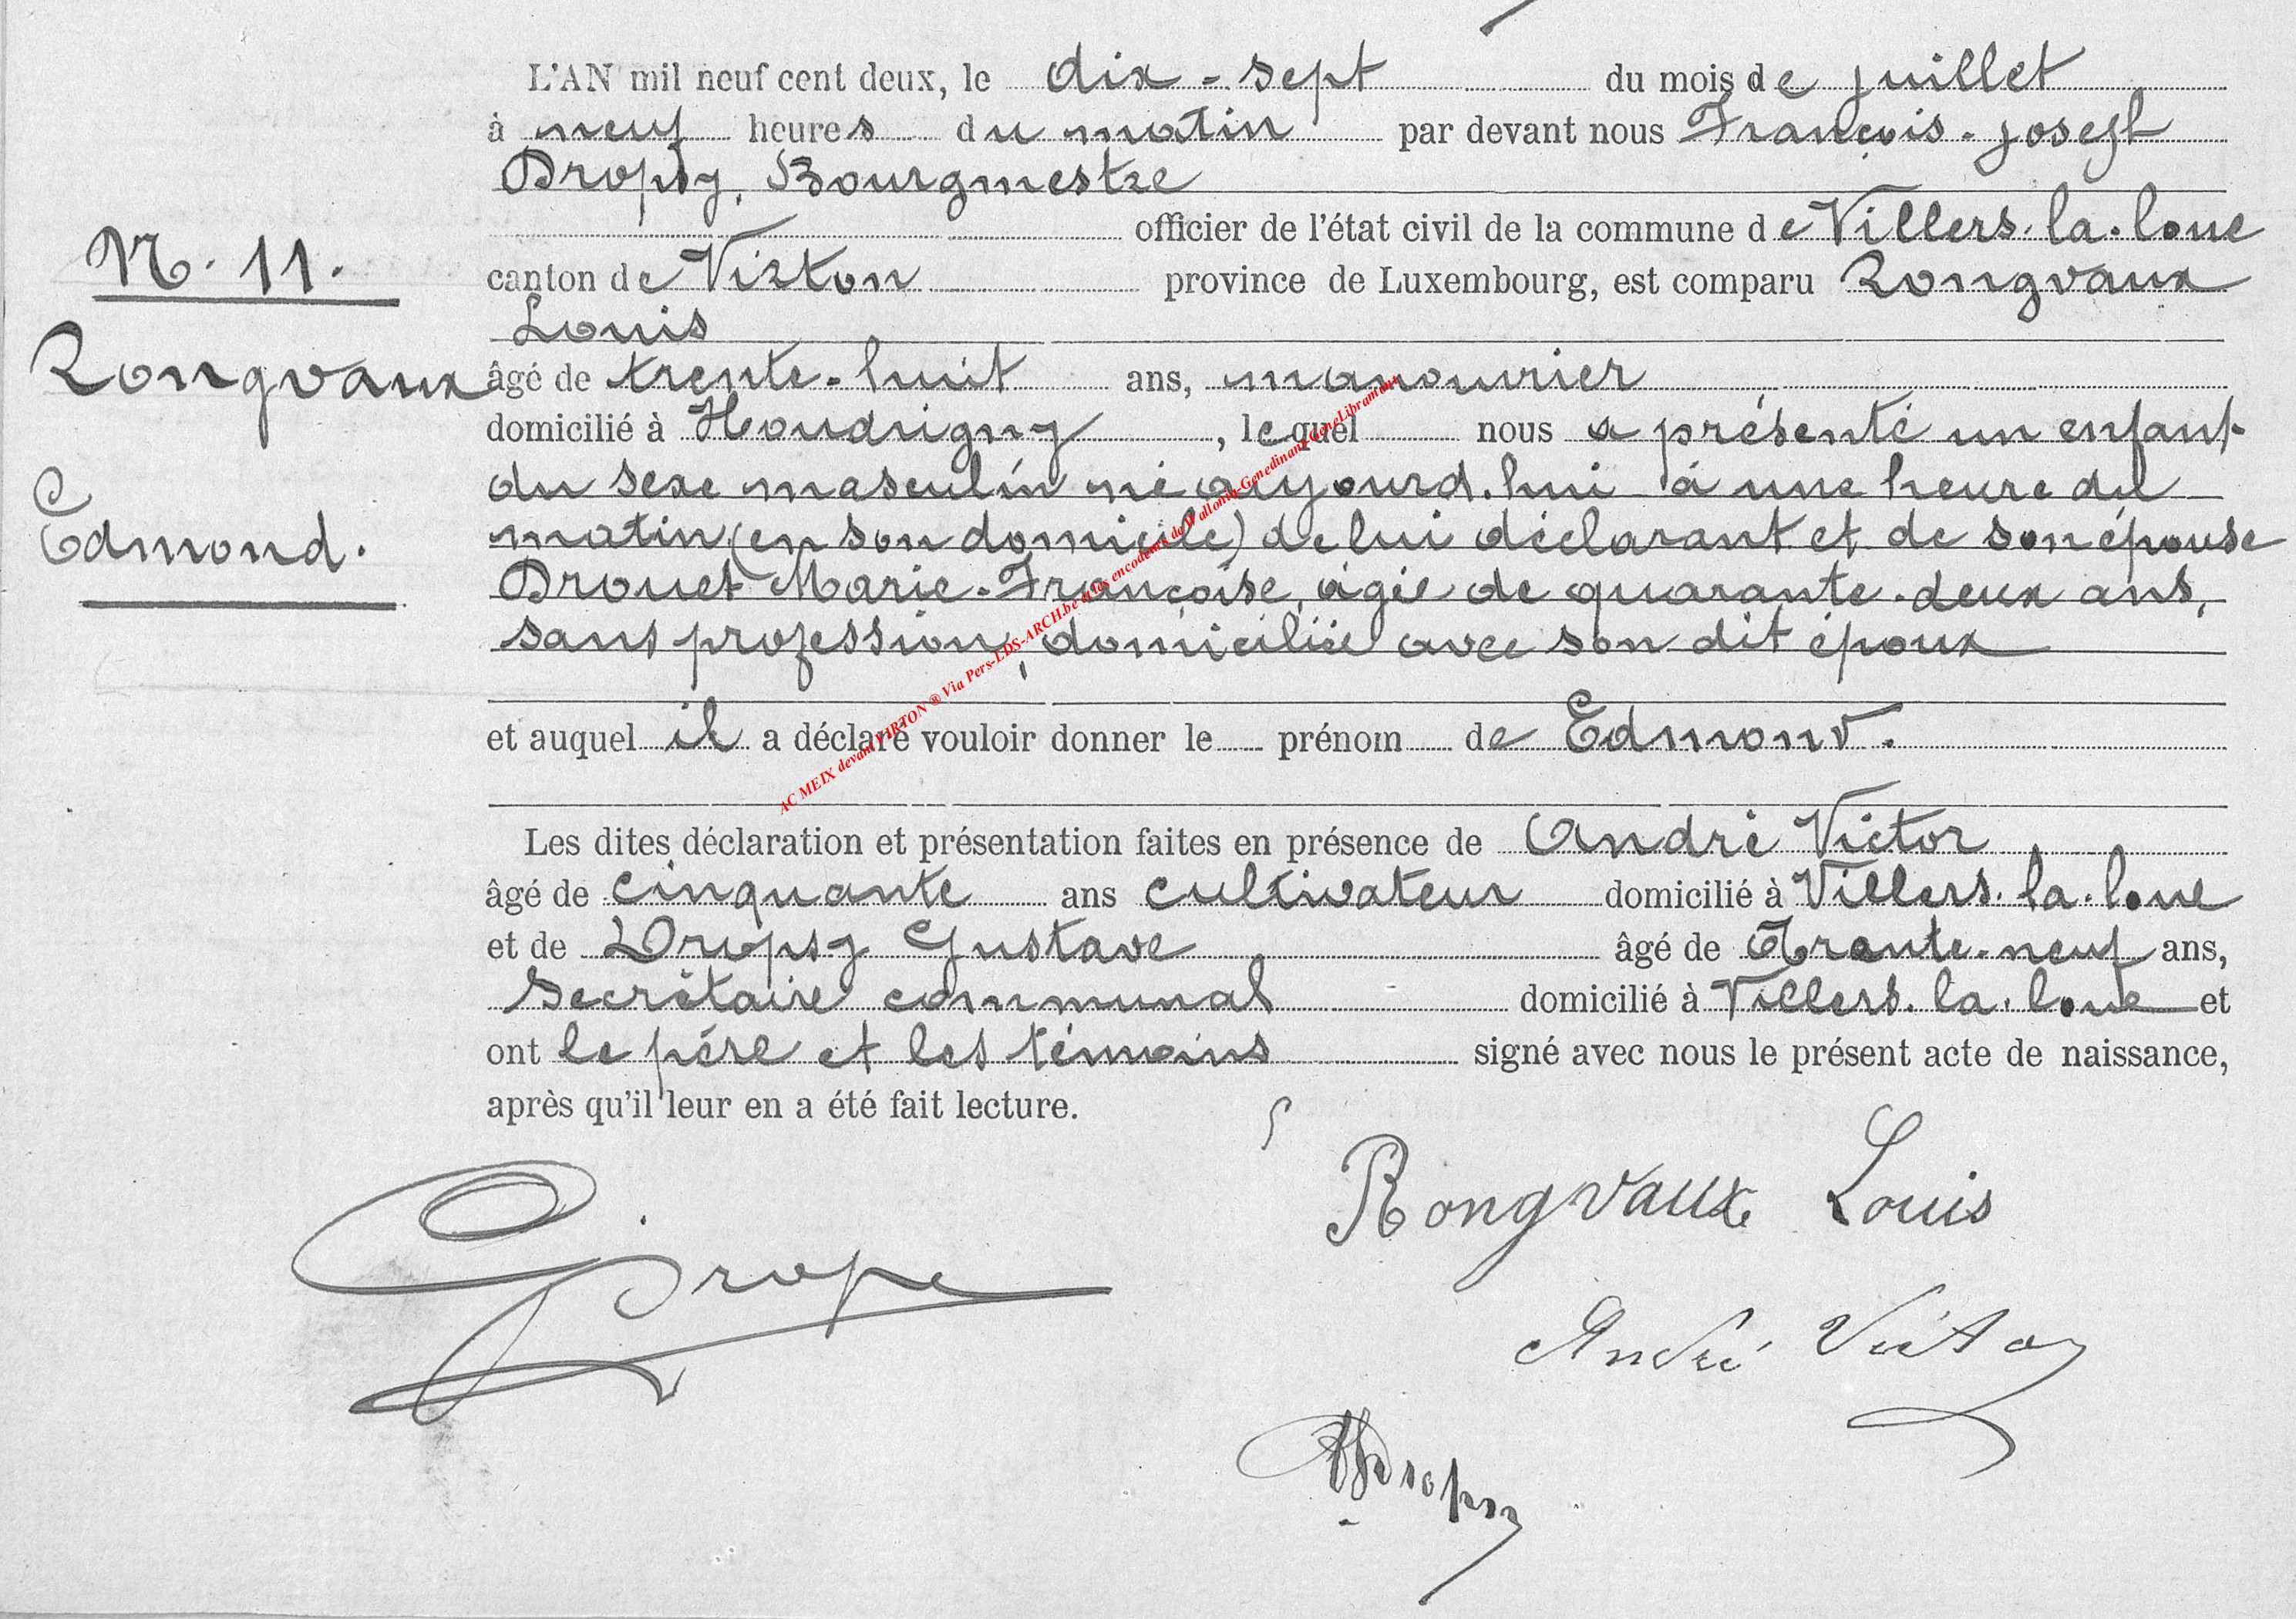 L'AN mil neuf cent deux, le dix-sept du mois de juillet
à neuf heures du matin par devant nous François-joseph
Dropsy, Bourgmestre
officier de l'état civil de la commune de Villers-la-loue
N. 11.
canton de Virton province de Luxembourg, est comparu Rongvaux
Louis
Rongvaux
âgé de trente-huit ans, manouvrier
domicilié à Houdrigny, lequel nous a présenté un enfant
du sexe masculin né aujourd'hui à une heure du
Edmond.
matin (en son domicile) de lui déclarant et de son épouse
Drouet Marie-Françoise, âgée de quarante-deux ans,
sans profession, domiciliée avec son dit époux
et auquel il a déclaré vouloir donner le prénom de Edmond.
AC MEIX devant VIRTON ® Via Pers-LDS-ARCH.be et les encodeurs de Wallonia-Genedinant-GeneLibramont
Les dites déclaration et présentation faites en présence de André Victor
âgé de cinquante ans cultivateur domicilié à Villers-la-loue
et de Dropsy Gustave âgé de Trente-neuf ans,
secrétaire communal domicilié à Villers-la-loue et
ont le père et les témoins signé avec nous le présent acte de naissance,
après qu'il leur en a été fait lecture.
Rongvaux Louis
André Victor
Dropsy